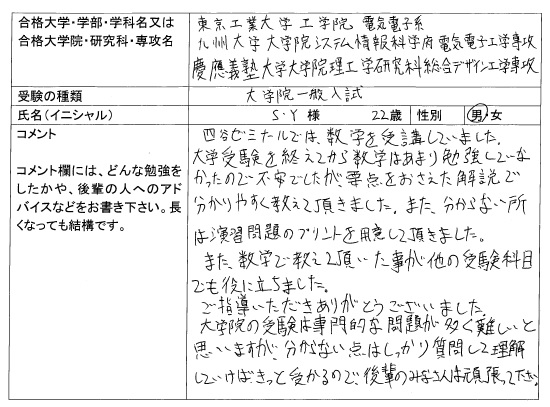 合格大学・学部・学科名又は
合格大学院・研究科・専攻名
東京工業大学 工学院 電気電子系
九州大学大学院システム情報科学府電気電子工学専攻
慶應義塾大学大学院理工学研究科総合デザイン工学専攻
受験の種類
大学院一般入試
氏名(イニシャル)
S・Y 様
22歳
性別
男・女
コメント
コメント欄には、どんな勉強を
したかや、後輩の人へのアド
バイスなどをお書き下さい。長
くなっても結構です。
四谷ゼミナールでは、数学を受講していました。
大学受験を終えてから数学はあまり勉強していな
かったので不安でしたが、要点をおさえた解説で
分かりやすく教えて頂きました。また、分からない所
は演習問題のプリントを用意して頂きました。
また、数学で教えて頂いた事が他の受験科目
でも役に立ちました。
ご指導いただきありがとうございました。
大学院の受験は専門的な問題が多く難しいと
思いますが、分からない点はしっかり質問して理解
していけばきっと受かるので、後輩のみなさんは頑張って下さい